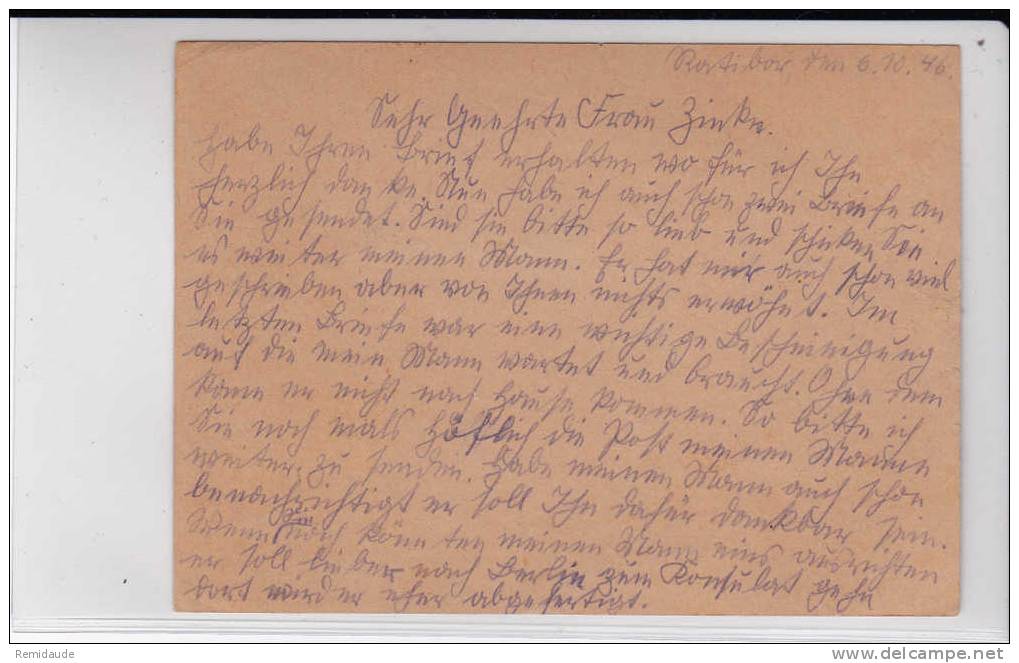 Ratibor, den 6.10.46.
Sehr Geehrte Frau Zinke.
Habe Ihren Brief erhalten wo für ich Ihn
herzlich danke. Nun habe ich auch schon zwei Briefe an
Sie gesendet. Sind sie bitte so lieb und schiken Sie
es weiter meinen Mann. Er hat mir auch schon viel
geschrieben aber von Ihnen nichts erwöhnt. Im
letzten Briefe war eine wichtige Bescheinigung
auf die mein Mann wartet und braucht. Ohne dem
kann er nicht nach Hause kommen. So bitte ich
Sie noch mals Höflich die Post meinen Manne
weiter zu senden. Habe meinen Mann auch schon
benachrichtigt er soll Ihn dafür dankbar sein.
Wenn Sie noch könnten meinen Mann eins ausrichten
er soll lieber nach Berlin zum Konsulat gehn
dort wird er eher abgefertigt.
Remidaude
www.delcampe.net